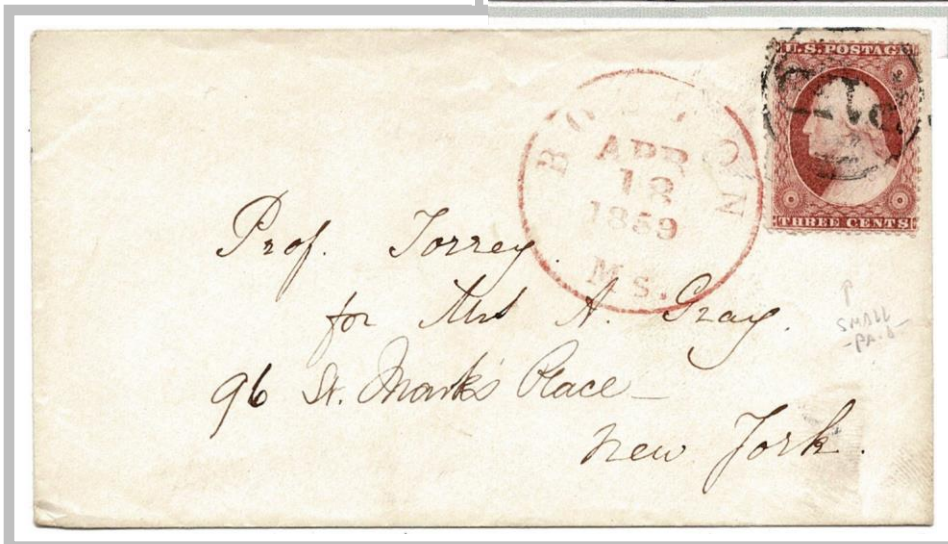 U.S. POSTAGE
THREE CENTS
BOSTON
APR
18
1859
Ms.
Prof. Torrey.
for Mrs A. Gray.
96 St. Mark's Place
New York.
SMALL
-PAID-